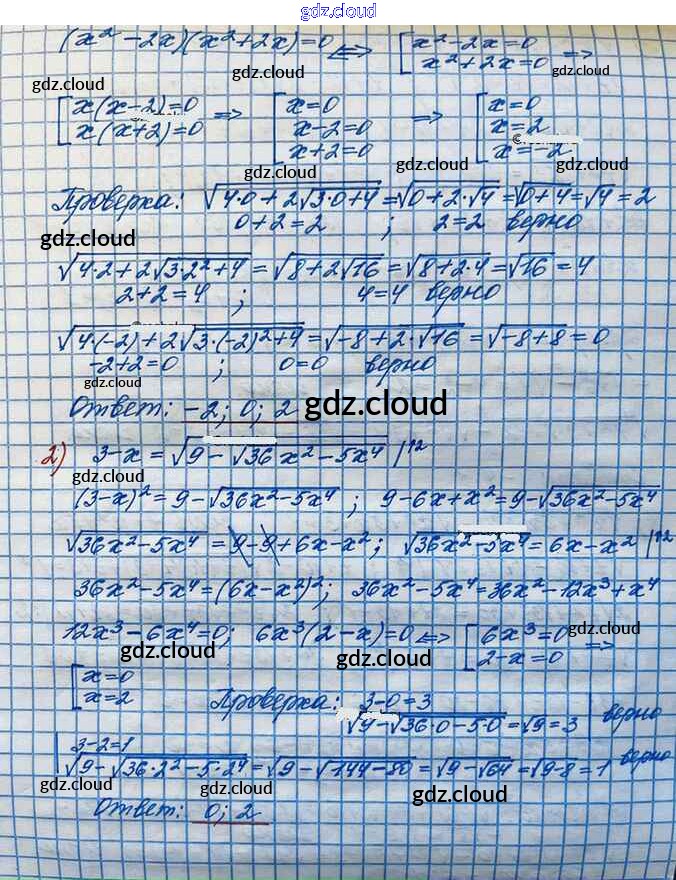 gdz.cloud
(x² - 2x)(x² + 2x) = 0 <=> [ x² - 2x = 0
x² + 2x = 0 =>
gdz.cloud gdz.cloud
[ x(x-2) = 0
x(x+2) = 0 => [ x = 0
x - 2 = 0
x + 2 = 0 => [ x = 0
x = 2
x = -2
gdz.cloud gdz.cloud gdz.cloud
Проверка: √(4·0 + 2√(3·0+4)) = √(0 + 2·√4) = √(0+4) = √4 = 2
0 + 2 = 2 ; 2 = 2 верно
gdz.cloud gdz.cloud
√(4·2 + 2√(3·2²+4)) = √(8 + 2√16) = √(8+2·4) = √16 = 4
2 + 2 = 4 ; 4 = 4 верно
√(4·(-2) + 2√(3·(-2)²+4)) = √(-8 + 2·√16) = √(-8+8) = 0
-2 + 2 = 0 ; 0 = 0 верно
gdz.cloud
Ответ: -2; 0; 2 gdz.cloud
2) 3 - x = √(9 - √(36x² - 5x⁴)) |↑2
gdz.cloud gdz.cloud
(3-x)² = 9 - √(36x² - 5x⁴) ; 9 - 6x + x² = 9 - √(36x² - 5x⁴)
gdz.cloud
√(36x² - 5x⁴) = 9 - 9 + 6x - x² ; √(36x² - 5x⁴) = 6x - x² |↑2
36x² - 5x⁴ = (6x - x²)² ; 36x² - 5x⁴ = 36x² - 12x³ + x⁴
12x³ - 6x⁴ = 0; 6x³(2 - x) = 0 <=> [ 6x³ = 0
2 - x = 0 =>
gdz.cloud gdz.cloud gdz.cloud
[ x = 0
x = 2
Проверка: 3 - 0 = 3
√(9 - √(36·0 - 5·0)) = √9 = 3 верно
gdz.cloud gdz.cloud
3 - 2 = 1
√(9 - √(36·2² - 5·2⁴)) = √(9 - √(144 - 80)) = √(9 - √64) = √(9-8) = 1 верно
gdz.cloud gdz.cloud
Ответ: 0; 2
gdz.cloud